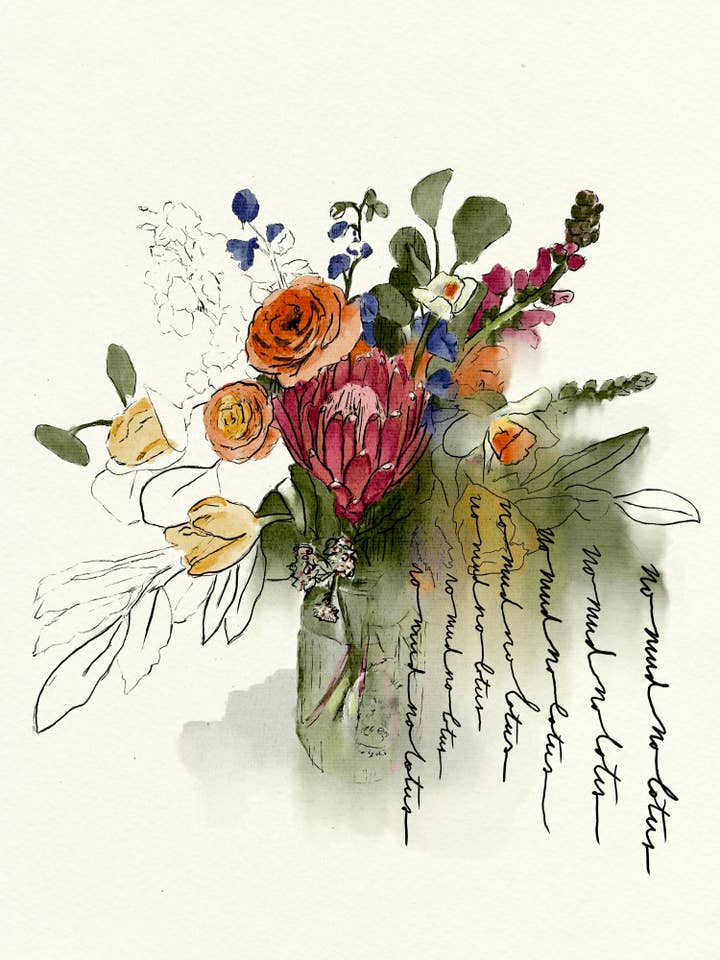 no mud no lotus
no mud no lotus
no mud no lotus
no mud no lotus
no mud no lotus
no mud no lotus
no mud no lotus